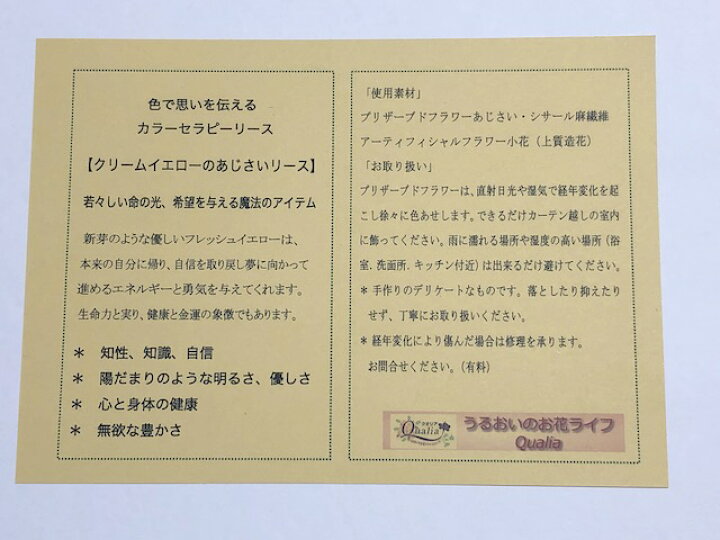 色で思いを伝える
カラーセラピーリース
【クリームイエローのあじさいリース】
若々しい命の光、希望を与える魔法のアイテム
新芽のような優しいフレッシュイエローは、
本来の自分に帰り、自信を取り戻し夢に向かって
進めるエネルギーと勇気を与えてくれます。
生命力と実り、健康と金運の象徴でもあります。
＊ 知性、知識、自信
＊ 陽だまりのような明るさ、優しさ
＊ 心と身体の健康
＊ 無欲な豊かさ
「使用素材」
プリザーブドフラワーあじさい・シサール麻繊維
アーティフィシャルフラワー小花（上質造花）
「お取り扱い」
プリザーブドフラワーは、直射日光や湿気で経年変化を起
こし徐々に色あせします。できるだけカーテン越しの室内
に飾ってください。雨に濡れる場所や湿度の高い場所（浴
室．洗面所．キッチン付近）は出来るだけ避けてください。
＊手作りのデリケートなものです。落としたり抑えたり
せず、丁寧にお取り扱いください。
＊経年変化により傷んだ場合は修理を承ります。
お問合せください。（有料）
クオリア
Qualia
うるおいのお花ライフ
Qualia